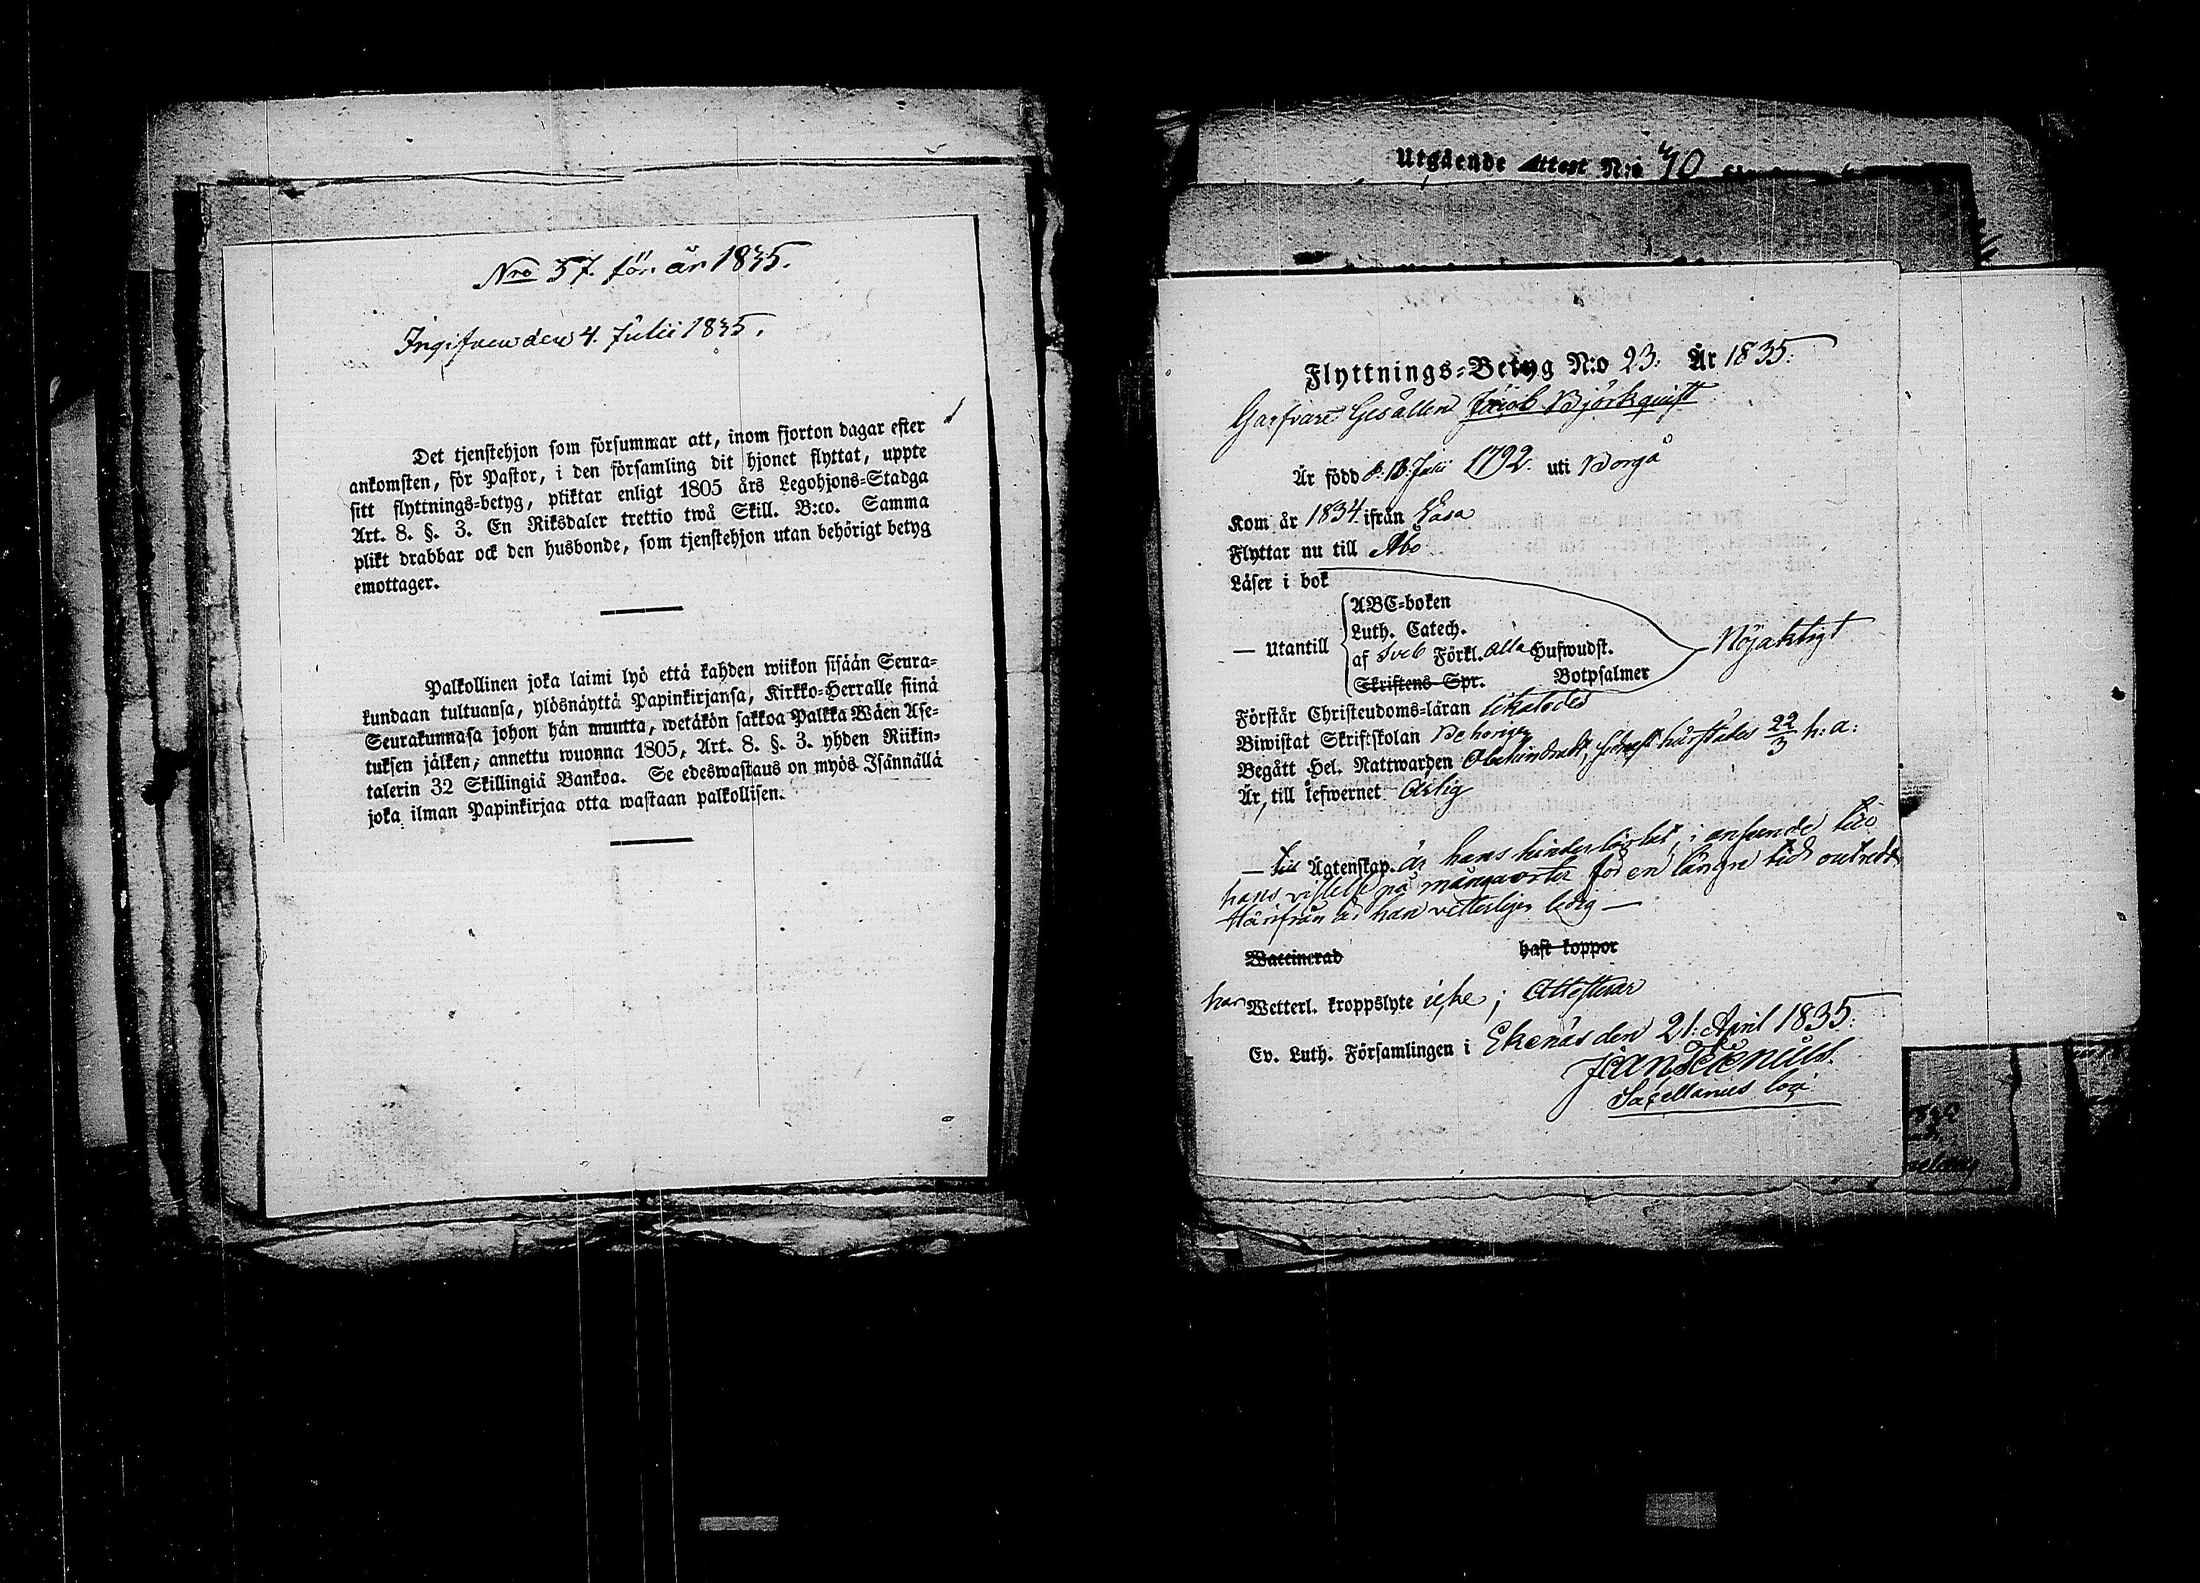 Nro 57. för år 1835.
Ingifven den 4. Julii 1835.
Det tjenstehjon som försummar att, inom fjorton dagar efter
ankomsten, för Pastor, i den församling dit hjonet flyttat, uppte
sitt flyttnings-betyg, pliktar enligt 1805 års Legohjons-Stadga
Art. 8. §. 3. En Riksdaler trettio twå Skill. B:co. Samma
plikt drabbar ock den husbonde, som tjenstehjon utan behörigt betyg
emottager.
Palkollinen joka laimi lyö että kahden wiikon sisään Seura-
kundaan tultuansa, ylösnäyttä Papinkirjansa, Kirkko-Herralle siinä
Seurakunnasa johon hän muutta, wetäkön sakkoa Palkka Wäen Ase-
tuksen jälken, annettu wuonna 1805, Art. 8. §. 3. yhden Riikin-
talerin 32 Skillingiä Bankoa. Se edeswastaus on myös Isännällä
joka ilman Papinkirjaa otta wastaan palkollisen.
Utgående Attest N:o 40
Flyttnings-Betyg N:o 23. År 1835.
Garfvare Gesällen Jacob Björkqvist
Är född d. 13 Julii 1792. uti Borgå
Kom år 1834. ifrån Vasa
Flyttar nu till Åbo
Läser i bok
— Utantill
ABC-boken
Luth. Catech.
af Sveb Förkl. alla Hufwudst.
Skriftens Spr. Botpsalmer
Nöjaktigt
Förstår Christendoms-läran likaledes
Biwistat Skriftskolan Behörigen
Begått Hel. Nattwarden Obehindradt, senast härstädes 22/3 h: a:
Är till lefwernet ärlig
— till Ägtenskap. är hans hinderlöshet, i anseende till
hans vistelse på många orter för en längre tid outredt
Härifrån är han vetterligen ledig —
Waccinerad haft koppor
har Wetterl. kroppslyte icke; Attesterar
Ev. Luth. Församlingen i Ekenäs den 21. April 1835.
Sacellanus loci